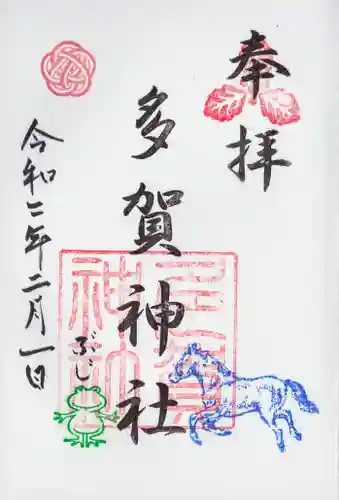 奉拝
多賀神社
令和二年二月一日
ぶじ
多賀
神社